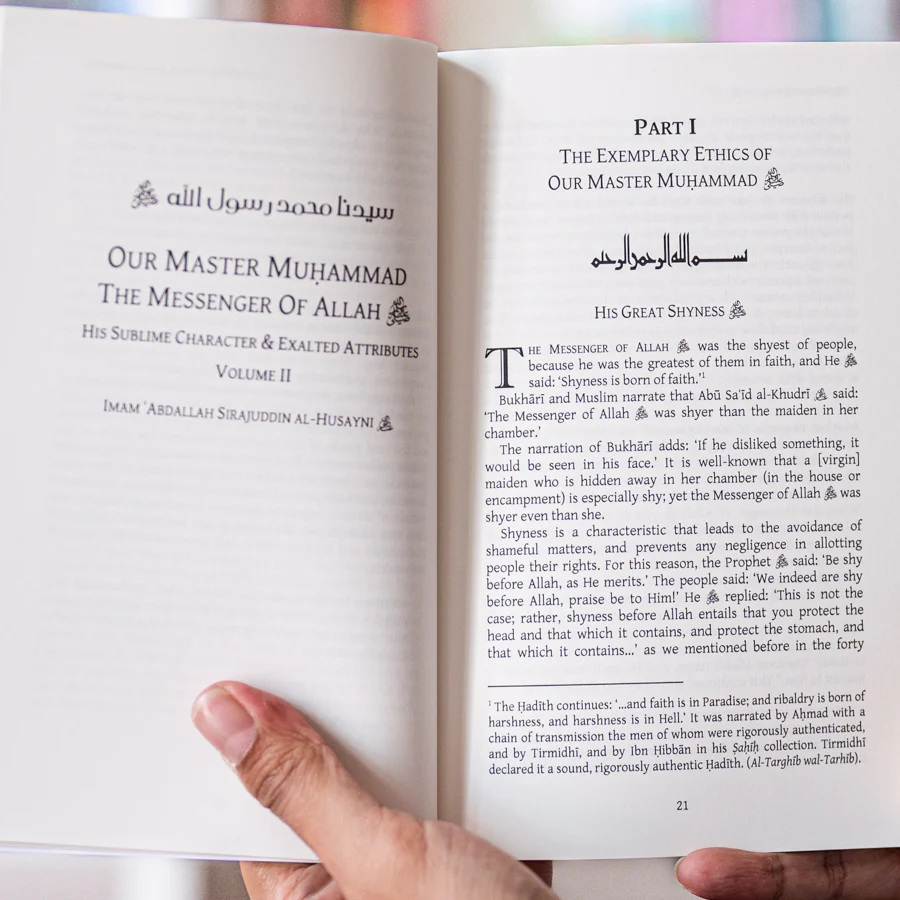 سيدنا محمد رسول الله ﷺ
OUR MASTER MUḤAMMAD
THE MESSENGER OF ALLAH ﷺ
HIS SUBLIME CHARACTER & EXALTED ATTRIBUTES
VOLUME II
IMAM ʿABDALLAH SIRAJUDDIN AL-HUSAYNI
PART I
THE EXEMPLARY ETHICS OF
OUR MASTER MUḤAMMAD ﷺ
بسم الله الرحمن الرحيم
HIS GREAT SHYNESS ﷺ
THE MESSENGER OF ALLAH ﷺ was the shyest of people,
because he was the greatest of them in faith, and He ﷺ
said: ‘Shyness is born of faith.’¹
Bukhārī and Muslim narrate that Abū Saʿīd al-Khudrī said:
‘The Messenger of Allah ﷺ was shyer than the maiden in her
chamber.’
The narration of Bukhārī adds: ‘If he disliked something, it
would be seen in his face.’ It is well-known that a [virgin]
maiden who is hidden away in her chamber (in the house or
encampment) is especially shy; yet the Messenger of Allah ﷺ was
shyer even than she.
Shyness is a characteristic that leads to the avoidance of
shameful matters, and prevents any negligence in allotting
people their rights. For this reason, the Prophet ﷺ said: ‘Be shy
before Allah, as He merits.’ The people said: ‘We indeed are shy
before Allah, praise be to Him!’ He ﷺ replied: ‘This is not the
case; rather, shyness before Allah entails that you protect the
head and that which it contains, and protect the stomach, and
that which it contains...’ as we mentioned before in the forty
¹ The Ḥadīth continues: ‘...and faith is in Paradise; and ribaldry is born of
harshness, and harshness is in Hell.’ It was narrated by Aḥmad with a
chain of transmission the men of whom were rigorously authenticated,
and by Tirmidhī, and by Ibn Ḥibbān in his Ṣaḥīḥ collection. Tirmidhī
declared it a sound, rigorously authentic Ḥadīth. (Al-Targhīb wal-Tarhīb).
21